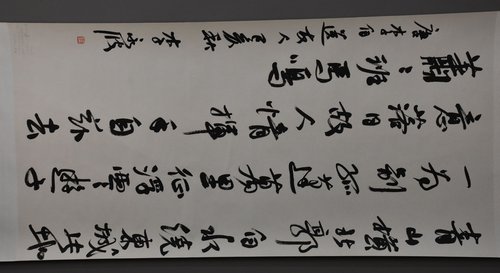 青山橫北郭白水繞東城此地
一為別孤蓬萬里征浮雲遊子
意落日故人情揮手自茲去
蕭〻班馬鳴
唐李白送友人